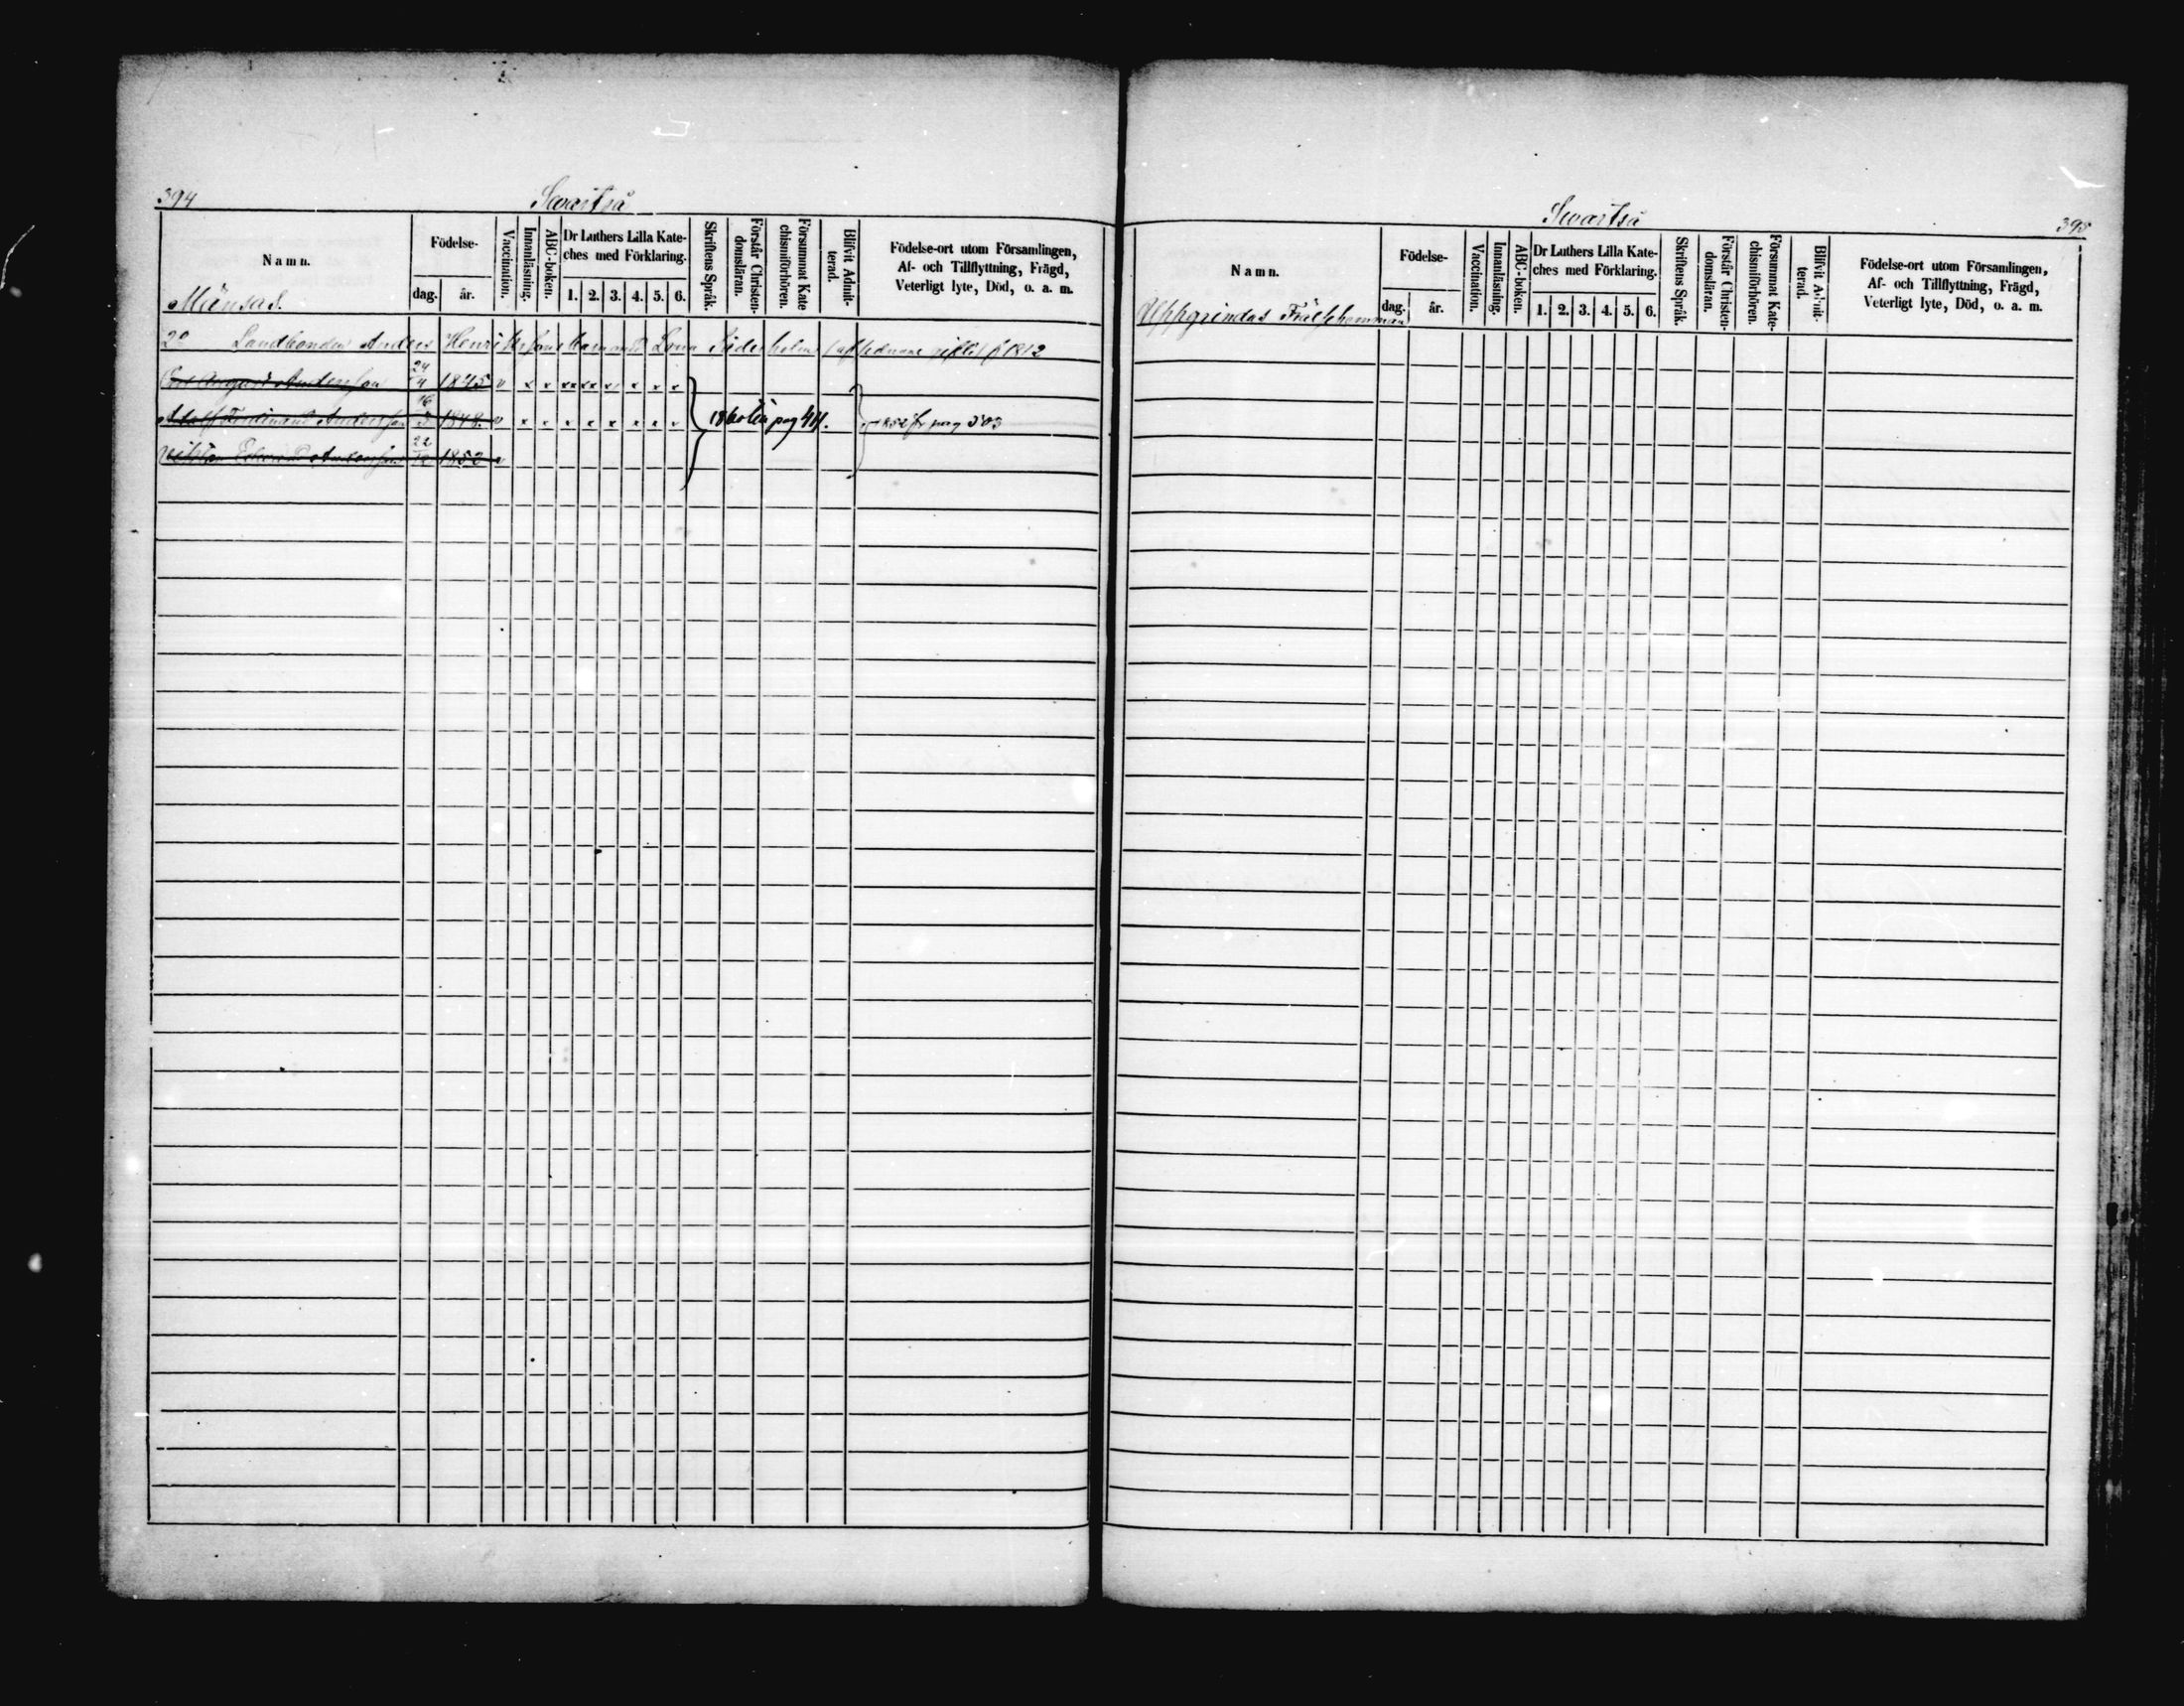 394
Swartså
Namn.
Månsas.
Födelse-
dag.
år.
Vaccination.
Innanläsning.
ABC-boken.
Dr Luthers Lilla Kate-
ches med Förklaring.
1. 2. 3. 4. 5. 6.
Skriftens Språk.
Förstår Christen-
domsläran.
Försummat Kate
chismiförhören.
Blifvit Admit-
terad.
Födelse-ort utom Församlingen,
Af- och Tillflyttning, Frägd,
Veterligt lyte, Död, o. a. m.
2° Landbonden Anders Henriksson Lena Söderholm
August Andersson 24/4 1845 v x x xx xx x x x x
Adolf Ferdinand Andersson 16/3 1848. v x x x x x x x x 1860 till pag 411. 1852 fr pag 303
Edvard Andersson 22 1852 v
Swartså
395
Namn.
Uppgrindas Frälsehemman
Födelse-
dag.
år.
Vaccination.
Innanläsning.
ABC-boken.
Dr Luthers Lilla Kate-
ches med Förklaring.
1. 2. 3. 4. 5. 6.
Skriftens Språk.
Förstår Christen-
domsläran.
Försummat Kate-
chismiförhören.
Blifvit Admit-
terad.
Födelse-ort utom Församlingen,
Af- och Tillflyttning, Frägd,
Veterligt lyte, Död, o. a. m.